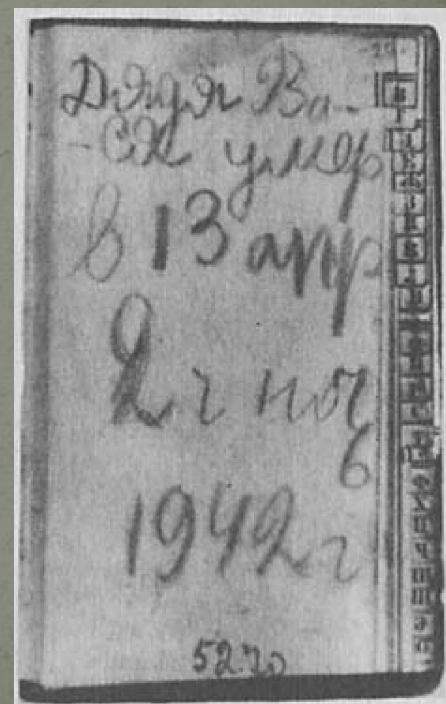 Дядя Ва-
-ся умер
в 13 апр
2 ч ноч
ь
1942 г